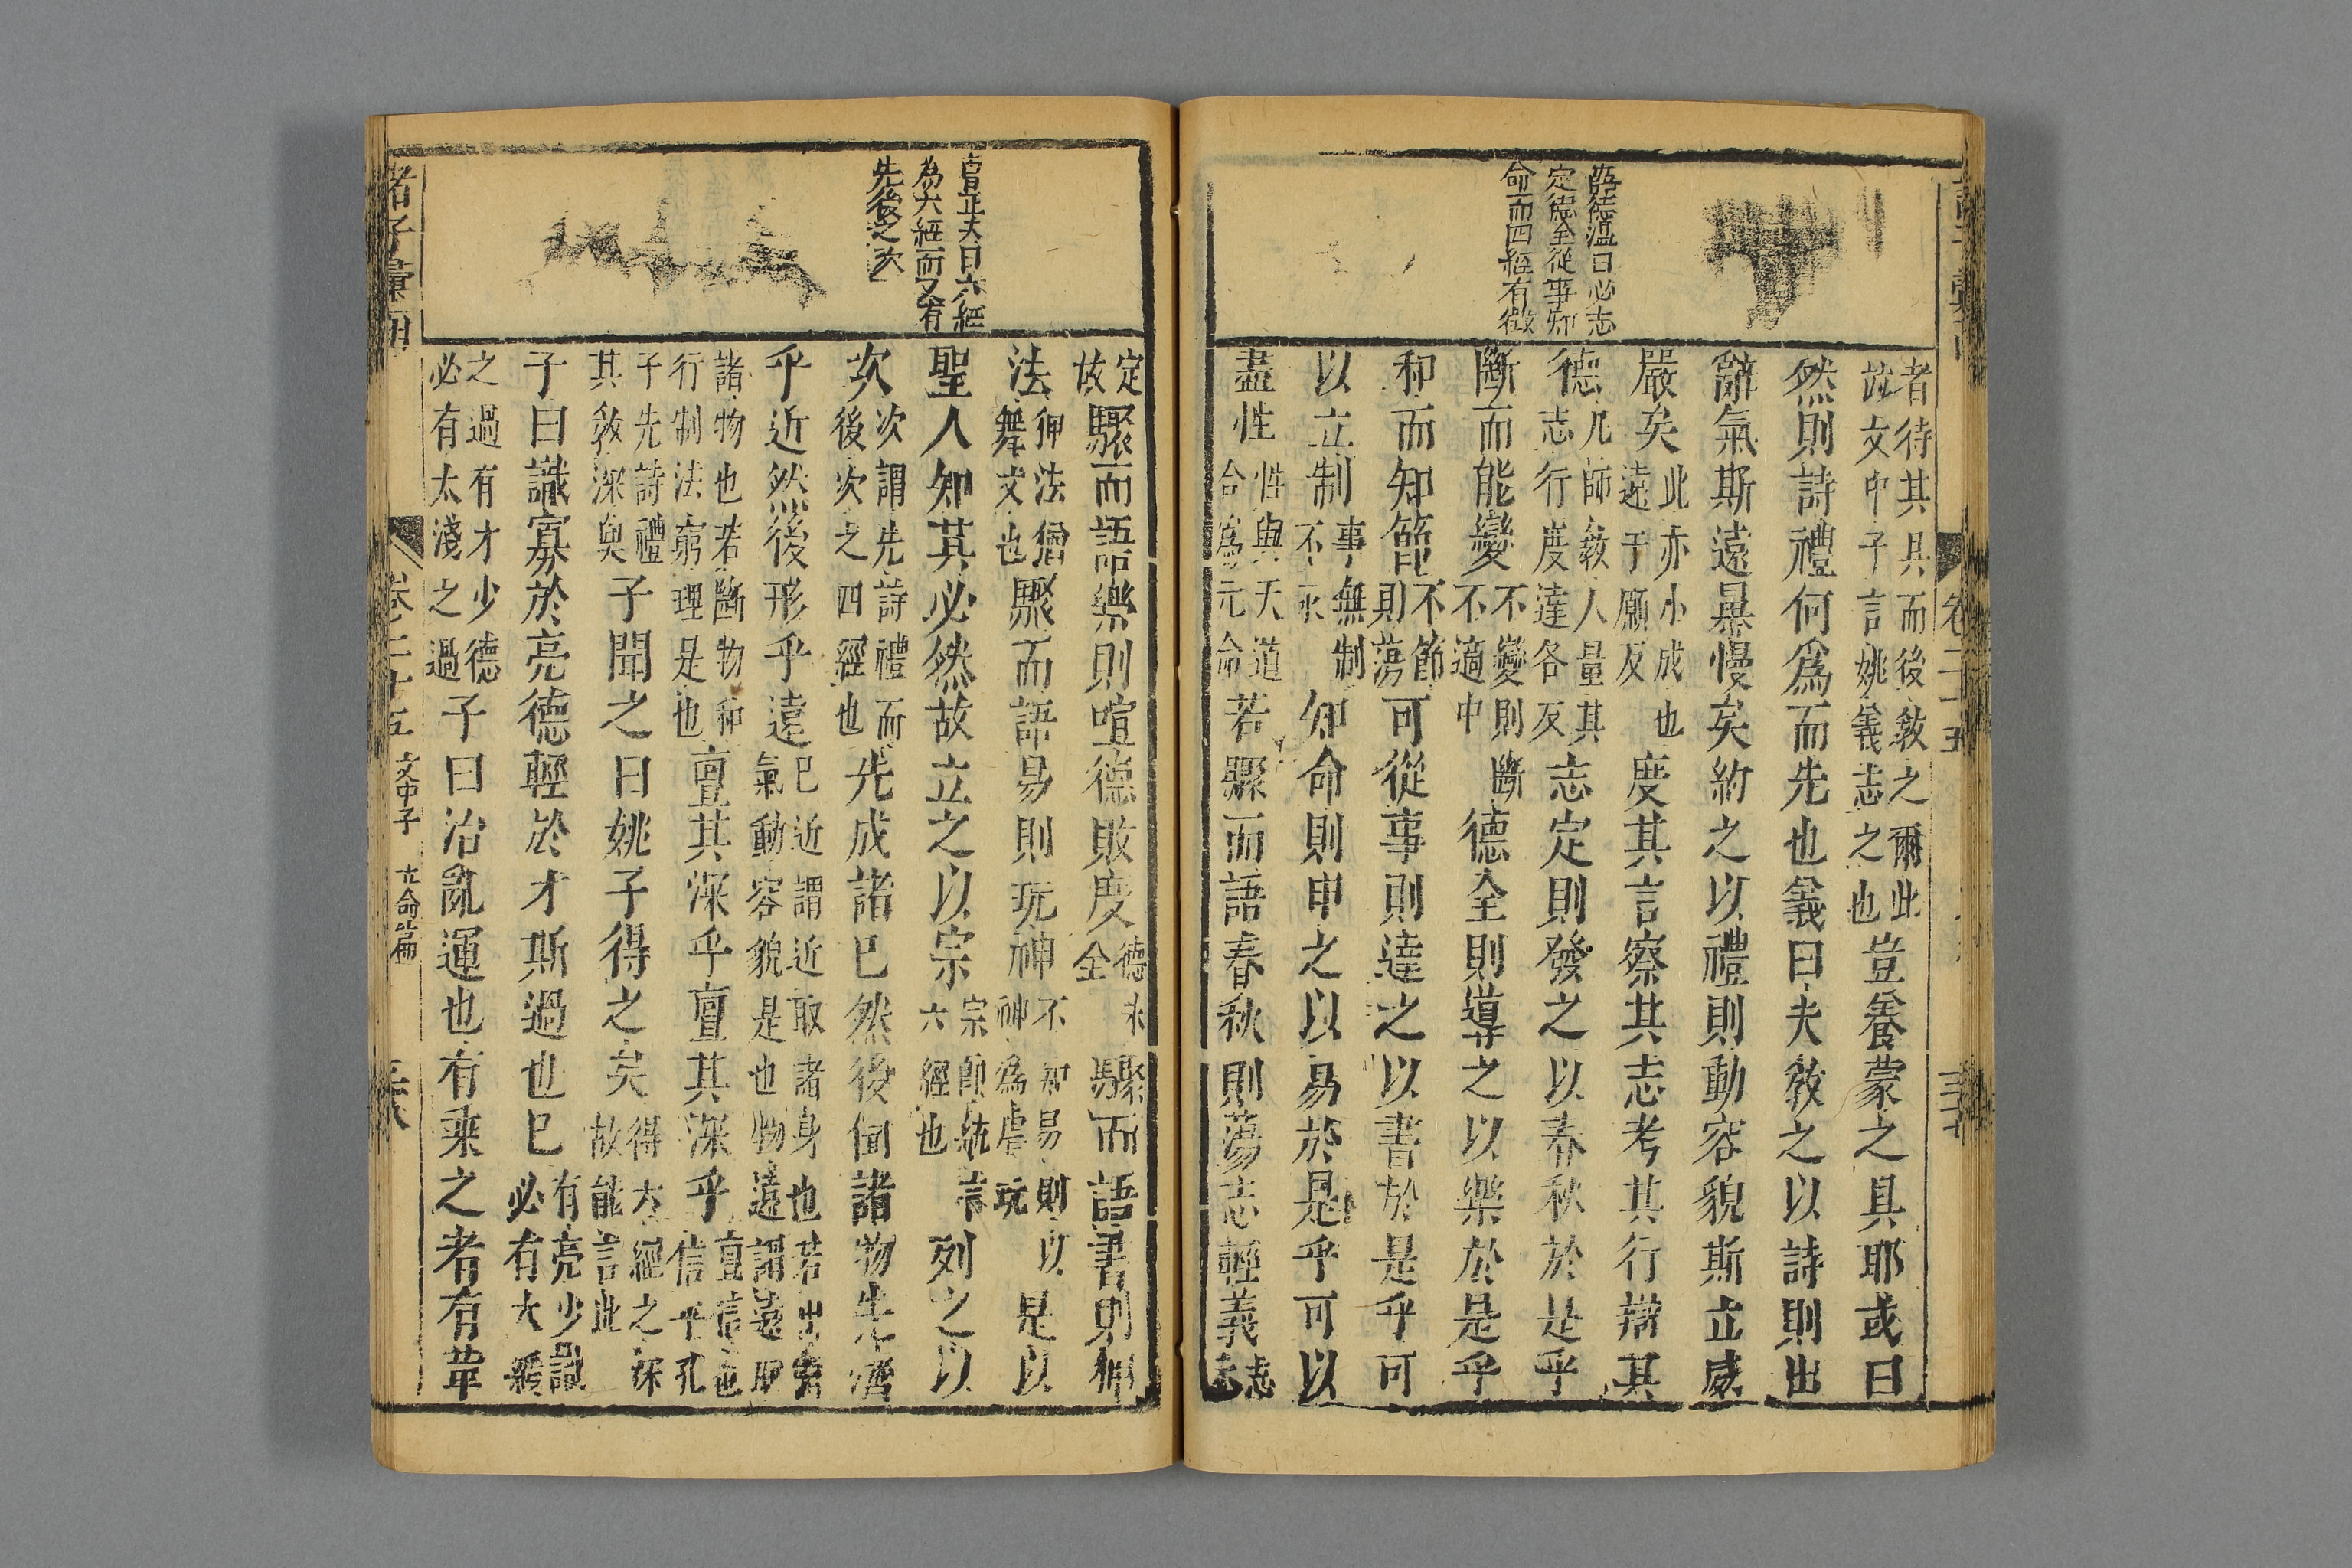 者待其具而後敎之爾此
故文中子言姚義志之也
豈養蒙之具耶或曰
然則詩禮何爲而先也義曰夫敎之以詩則出
辭氣斯遠暴慢矣約之以禮則動容貌斯立威
嚴矣此亦小成也遠于願反度其言察其志考其行辯其
德凡師敎人量其志行度達各反志定則發之以春秋於是乎
斷而能變不變則斷不適中德全則導之以樂於是乎
和而知節不節則蕩可從事則達之以書於是乎可
以立制事無制不永知命則申之以易於是乎可以
盡性性與天道合爲元命若驟而語春秋則蕩志輕義志
定故驟而語樂則喧德敗度德未全驟而語書則狎
法狎法猶舞文也驟而語易則玩神不知易則以神爲虛玩是以
聖人知其必然故立之以宗宗師統言六經也列之以
次次謂先詩禮而後次之四經也先成諸已然後備諸物先濟
乎近然後形乎遠已近謂近取諸身也若出辭氣動容貌是也物遠謂遠取
諸物也若斷物和行制法窮理是也亶其深乎亶其深乎亶信也信乎孔
子先詩禮其敎深奥子聞之曰姚子得之矣得六經之深故能言此
子曰識寡於亮德輕於才斯過也已有亮少識必有大緩
之過有才少德必有太淺之過子曰治亂運也有乘之者有革
薛德溫曰必志
定德全從事知
命而四經有徵
曾正夫曰六經
為大經而又有
先後之次
諸子彙
卷二十五
文中子
立命篇